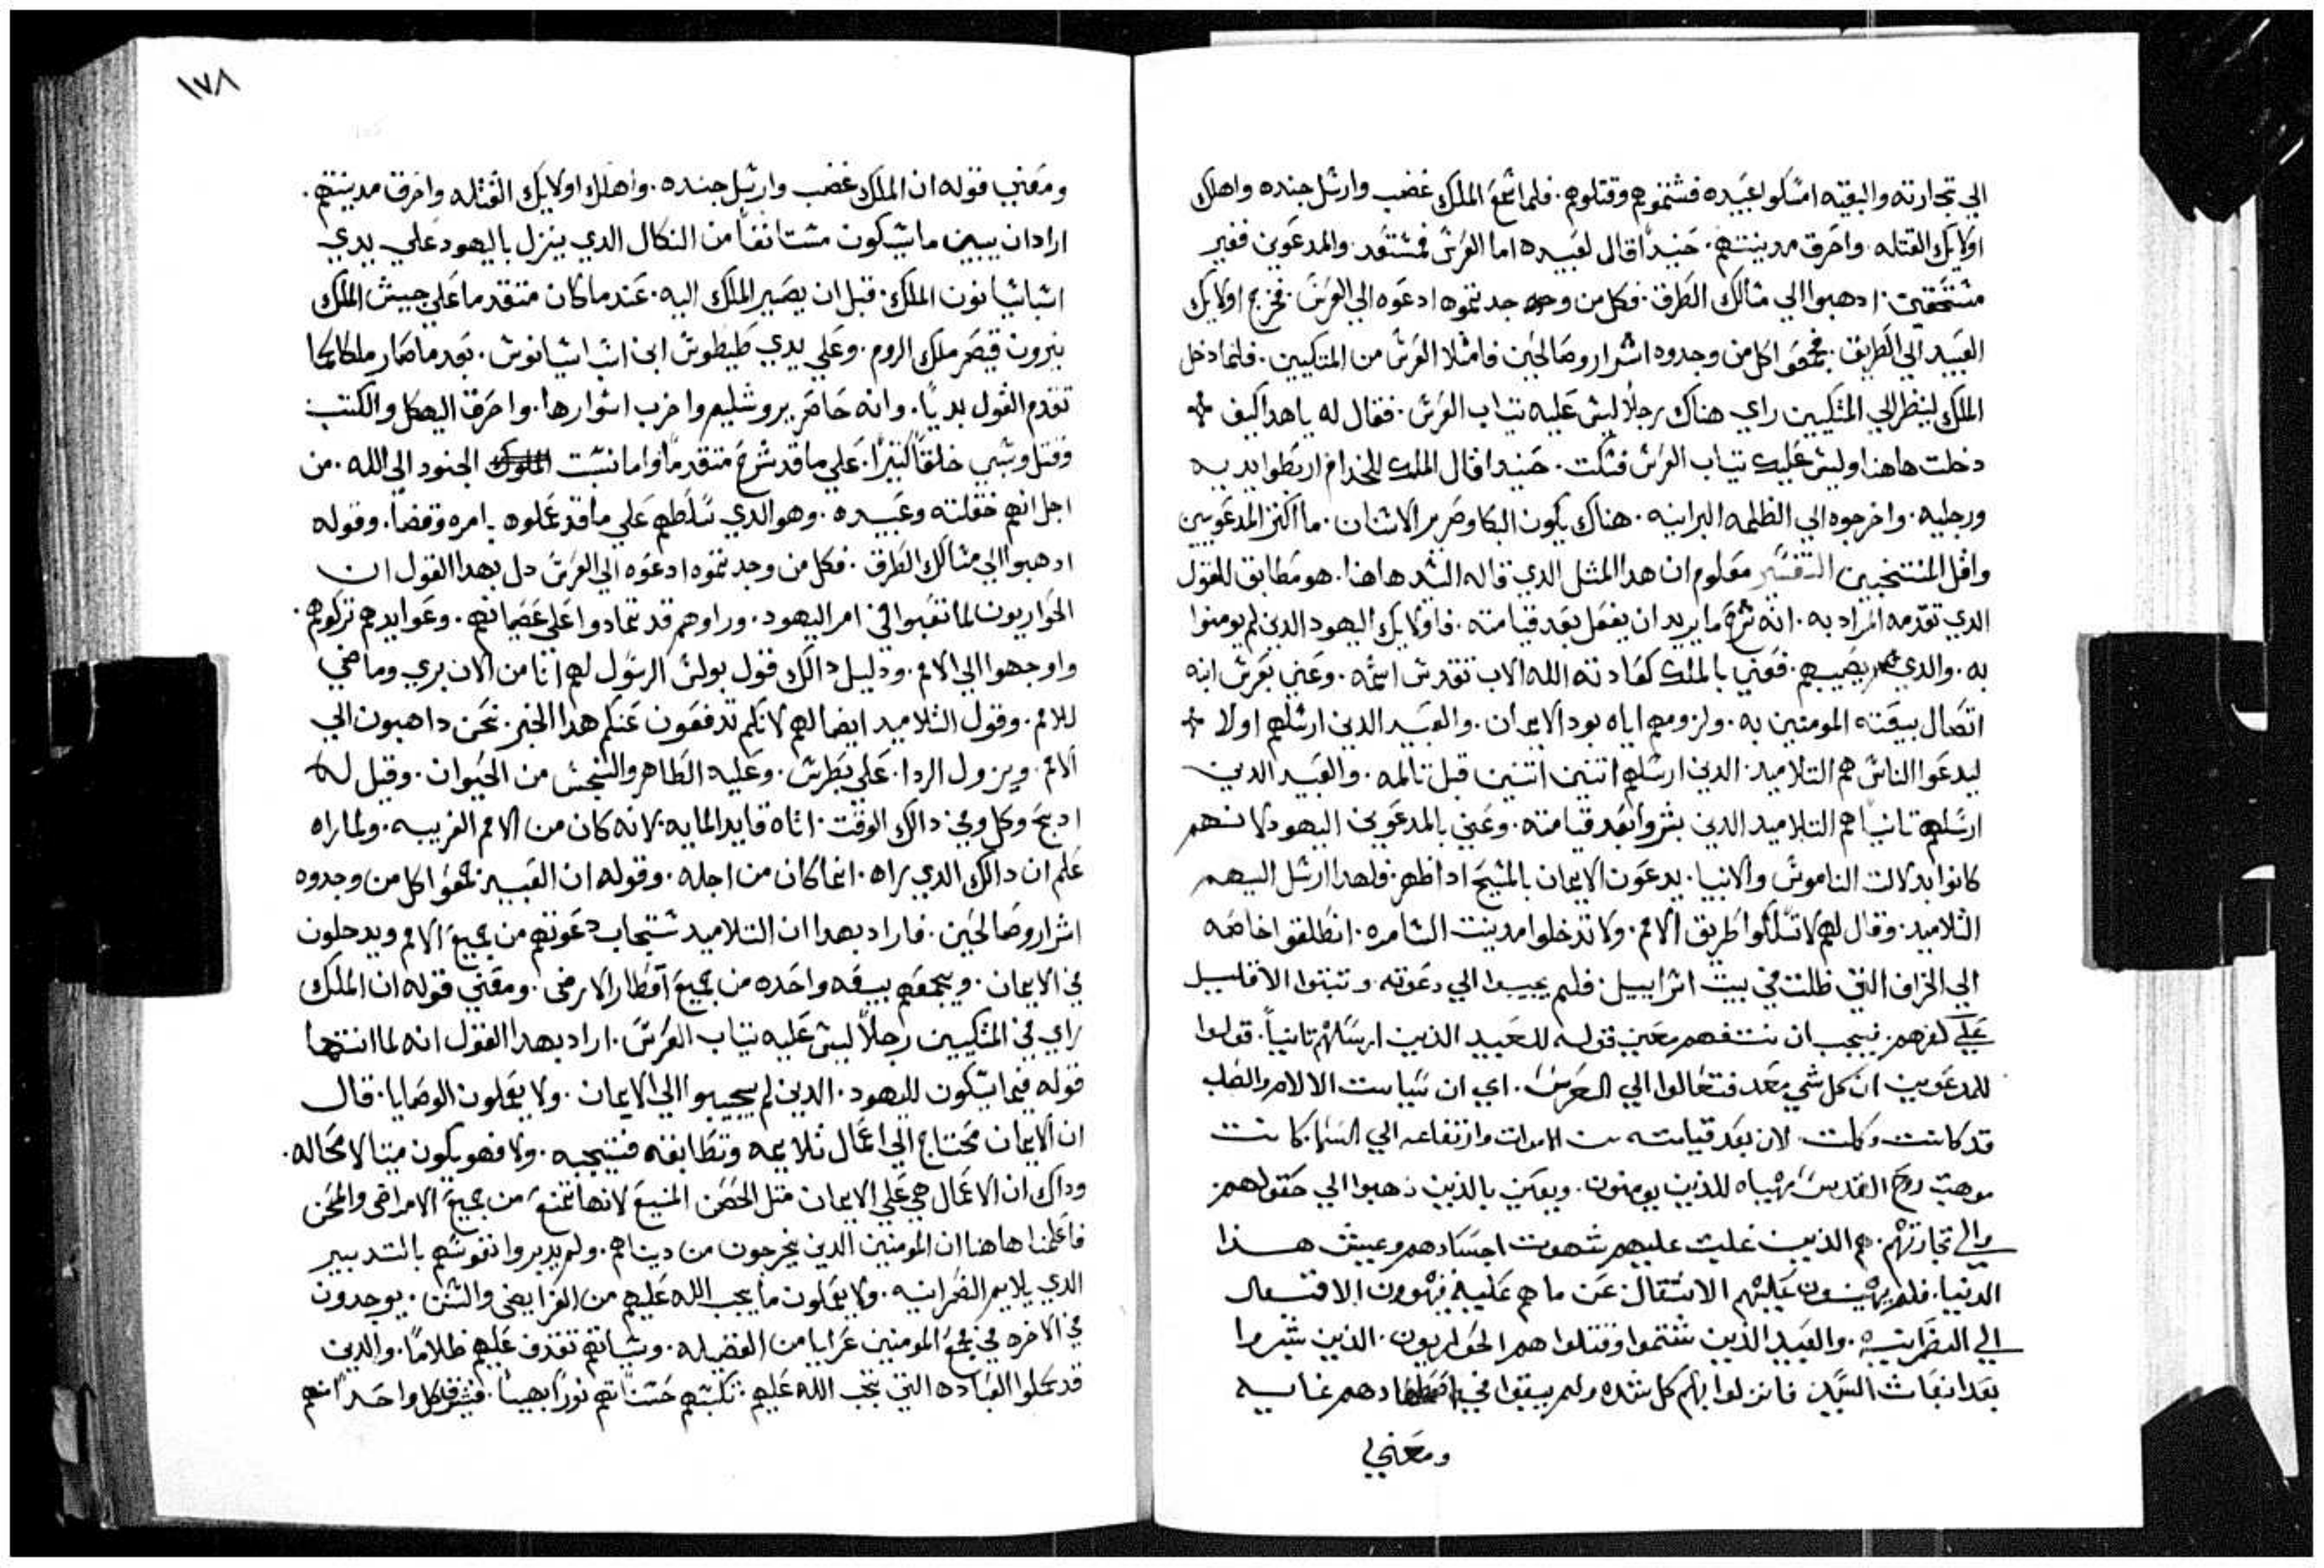 الي تجارته والبقيه امسكوا عبيده فشتموهم وقتلوهم. فلما سمع الملك غضب وارسل جنده واهلك
اولايك القتله. واحرق مدينتهم. حنيداً قال لعبيده اما العرس فمستعد. والمدعوين فغير
مستحقين. ادهبوا الي مسالك الطرق. فكل من وجدتموه ادعوه الي العرس. فخرج اولايك
العبيد الي الطريق. فجمعوا كل من وجدوه اشرار وصالحين فامتلا العرس من المتكيين. فلما دخل
الملك لينظر الي المتكيين راي هناك رجلاً ليس عليه تياب العرس. فقال له ياهدا كيف
دخلت هاهنا وليس عليك تياب العرس فسكت. حنيدا قال الملك للخدام اربطوا يديه
ورجليه. واخرجوه الي الظلمه البرانيه. هناك يكون البكا وصرير الاسنان. ما اكتر المدعوين
واقل المنتخبين التفسير معلوم ان هدا المتل الدي قاله السيد هاهنا. هو مطابق للقول
الدي تقدمه المراد به. انه شرح ما يريد ان يفعل بعد قيامته. فاولايك اليهود الدين لم يومنوا
به. والدي يصيبهم. فعني بالملك كعادته الله الاب تقدس اسمه. وعني بعرس ابنه
اتصال بيعته المومنين به. ولزومهم اياه بود الايمان. والعبيد الدين ارسلهم اولا
ليدعوا الناس هم التلاميد. الدين ارسلهم اتنين اتنين قبل تالمه. والعبيد الدين
ارسلهم تانياً هم التلاميد الدين بشروا بعد قيامته. وعني بالمدعوين اليهود لانهم
كانوا بدلالت الناموس والانبيا. يدعون الايمان بالمسيح ادا ظهر. فلهدا ارسل اليهم
التلاميد. وقال لهم لا تسلكوا طريق الامم. ولا تدخلوا مدينت السامره. انطلقوا خاصه
الي الخراف التي ظلت في بيت اسراييل. فلم يجيبوا الي دعوته. وتبتوا الا قليل
علي كفرهم. فيجب ان نتفهم معني قوله للعبيد الذين ارسلهم تانياً. قولوا
للمدعوين ان كل شي معد فتعالوا الي العرس. اي ان سياست الالام والصلب
قد كانت وكملت. لان بعد قيامته من الاموات وارتفاعه الي السما. كانت
موهبت روح القدس مهياه للذين يومنون. ويعني بالذين ذهبوا الي حقولهم
والي تجارتهم. هم الذين غلبت عليهم شهوت اجسادهم وعيش هذا
الدنيا. فلم عليهم الانتقال عن ما هم عليه
الي النصرانيه. والعبيد الذين شتموا وقتلوا هم الحواريون. الذين بشروا
بعد انبعاث السيد فانزلوا بهم كل شده ولم يبقوا في غايه
ومعني
١٧٨
ومعني قوله ان الملك غضب وارسل جنده. واهلك اولايك القتله واحرق مدينتهم.
اراد ان يبين ما سيكون مستانفاً من النكال الدي ينزل باليهود علي يدي
اسباسيانوس الملك. قبل ان يصير الملك اليه. عندما كان متقدما علي جيش الملك
نيرون قيصر ملك الروم. وعلي يدي طيطوس ابن اسباسيانوس. بعد ما صار ملكا كما
تقدم القول بدياً. وانه حاصر يروشليم واخرب اسوارها. واحرق الهيكل والكتب
وقتل وسبي خلقاً كتيراً. علي ما قد شرح متقدماً واما نسبت الجنود الي الله. من
اجل انهم خقلته وعبيده. وهو الدي سلطهم علي ما قد عملوه بامره وقضاً. وقوله
ادهبوا الي مسالك الطرق. فكل من وجدتموه ادعوه الي العرس دل بهدا القول ان
الحواريون لما تعبوا في امر اليهود. وراوهم قد تمادوا علي عصيانهم. وعوايدهم تركوهم.
واوجهوا الي الامم. ودليل دالك قول بولس الرسول لهم انا من الان بري وماضي
للامم. وقول التلاميد ايضا لهم لانكم تدفعون عنكم هدا الخبر. نحن داهبون الي
الامم. وبنزول الردا. علي بطرس. وعليه الطاهر والنجس من الحيوان. وقيل له
ادبح وكل وفي دالك الوقت. اتاه قايد المايه. لانه كان من الامم الغريبه. ولما راه
علم ان دالك الدي راه. انما كان من اجله. وقوله ان العبيد جمعوا كل من وجدوه
اشرار وصالحين. فاراد بهدا ان التلاميد ستجاب دعوتهم من جميع الامم ويدخلون
في الايمان. ويجمعهم بيعه واحده من جميع اقطار الارض. ومعني قوله ان الملك
راي في المتكيين رجلاً ليس عليه تياب العرس. اراد بهدا القول انه لما انتها
قوله فيما سيكون لليهود. الدين لم يجيبوا الي الايمان. ولا يعملون الوصايا. قال
ان الايمان محتاج الي اعمال تلايمه وتطابقه فتنجيه. ولا فهو يكون ميتا لا محاله.
وداك ان الاعمال هي علي الايمان متل الحصن المنيع لانها تمنع من جميع الامراض والمحن
فاعلمنا هاهنا ان المومنين الدين يخرجون من دنياهم. ولم يدبروا نفوسهم بالتدبير
الدي يلايم النصرانيه. ولا يعملون ما يجب الله عليهم من الفرايض والسنن. يوجدون
في الاخره في مجمع المومنين عرايا من الفضيله. وسياتهم تقدف عليهم ظلاماً. والدين
قد عملوا العباده التي تجب الله عليهم. تكسبهم حسناتهم نوراً بهياً. فيشرق كل واحداً منهم